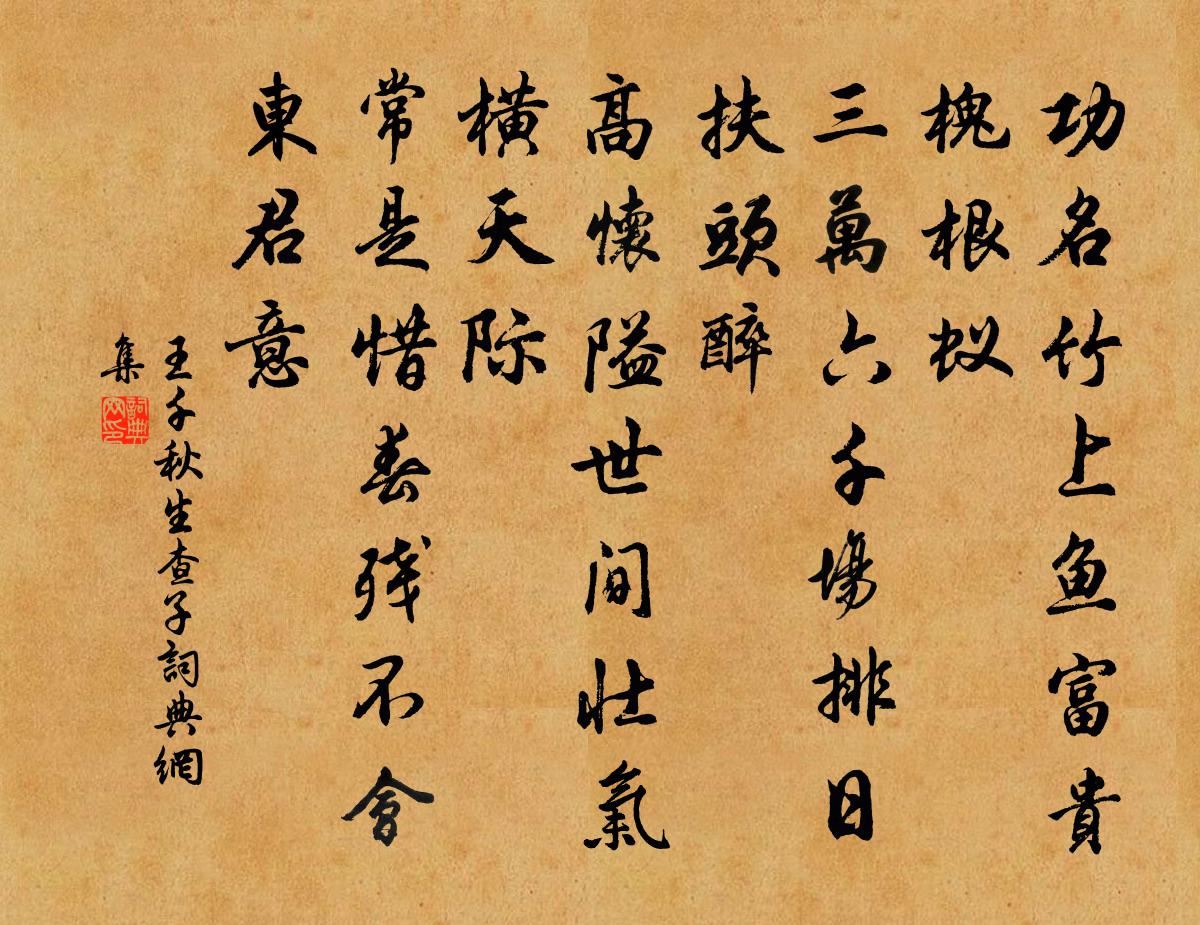 功名竹上魚富貴
槐根蚁
三萬六千場排日
扶頭醉
高懷隘世間壮氣
横天际
常是惜春残不會
東君意
王千秋生查子詞典網
集
詞典
网印